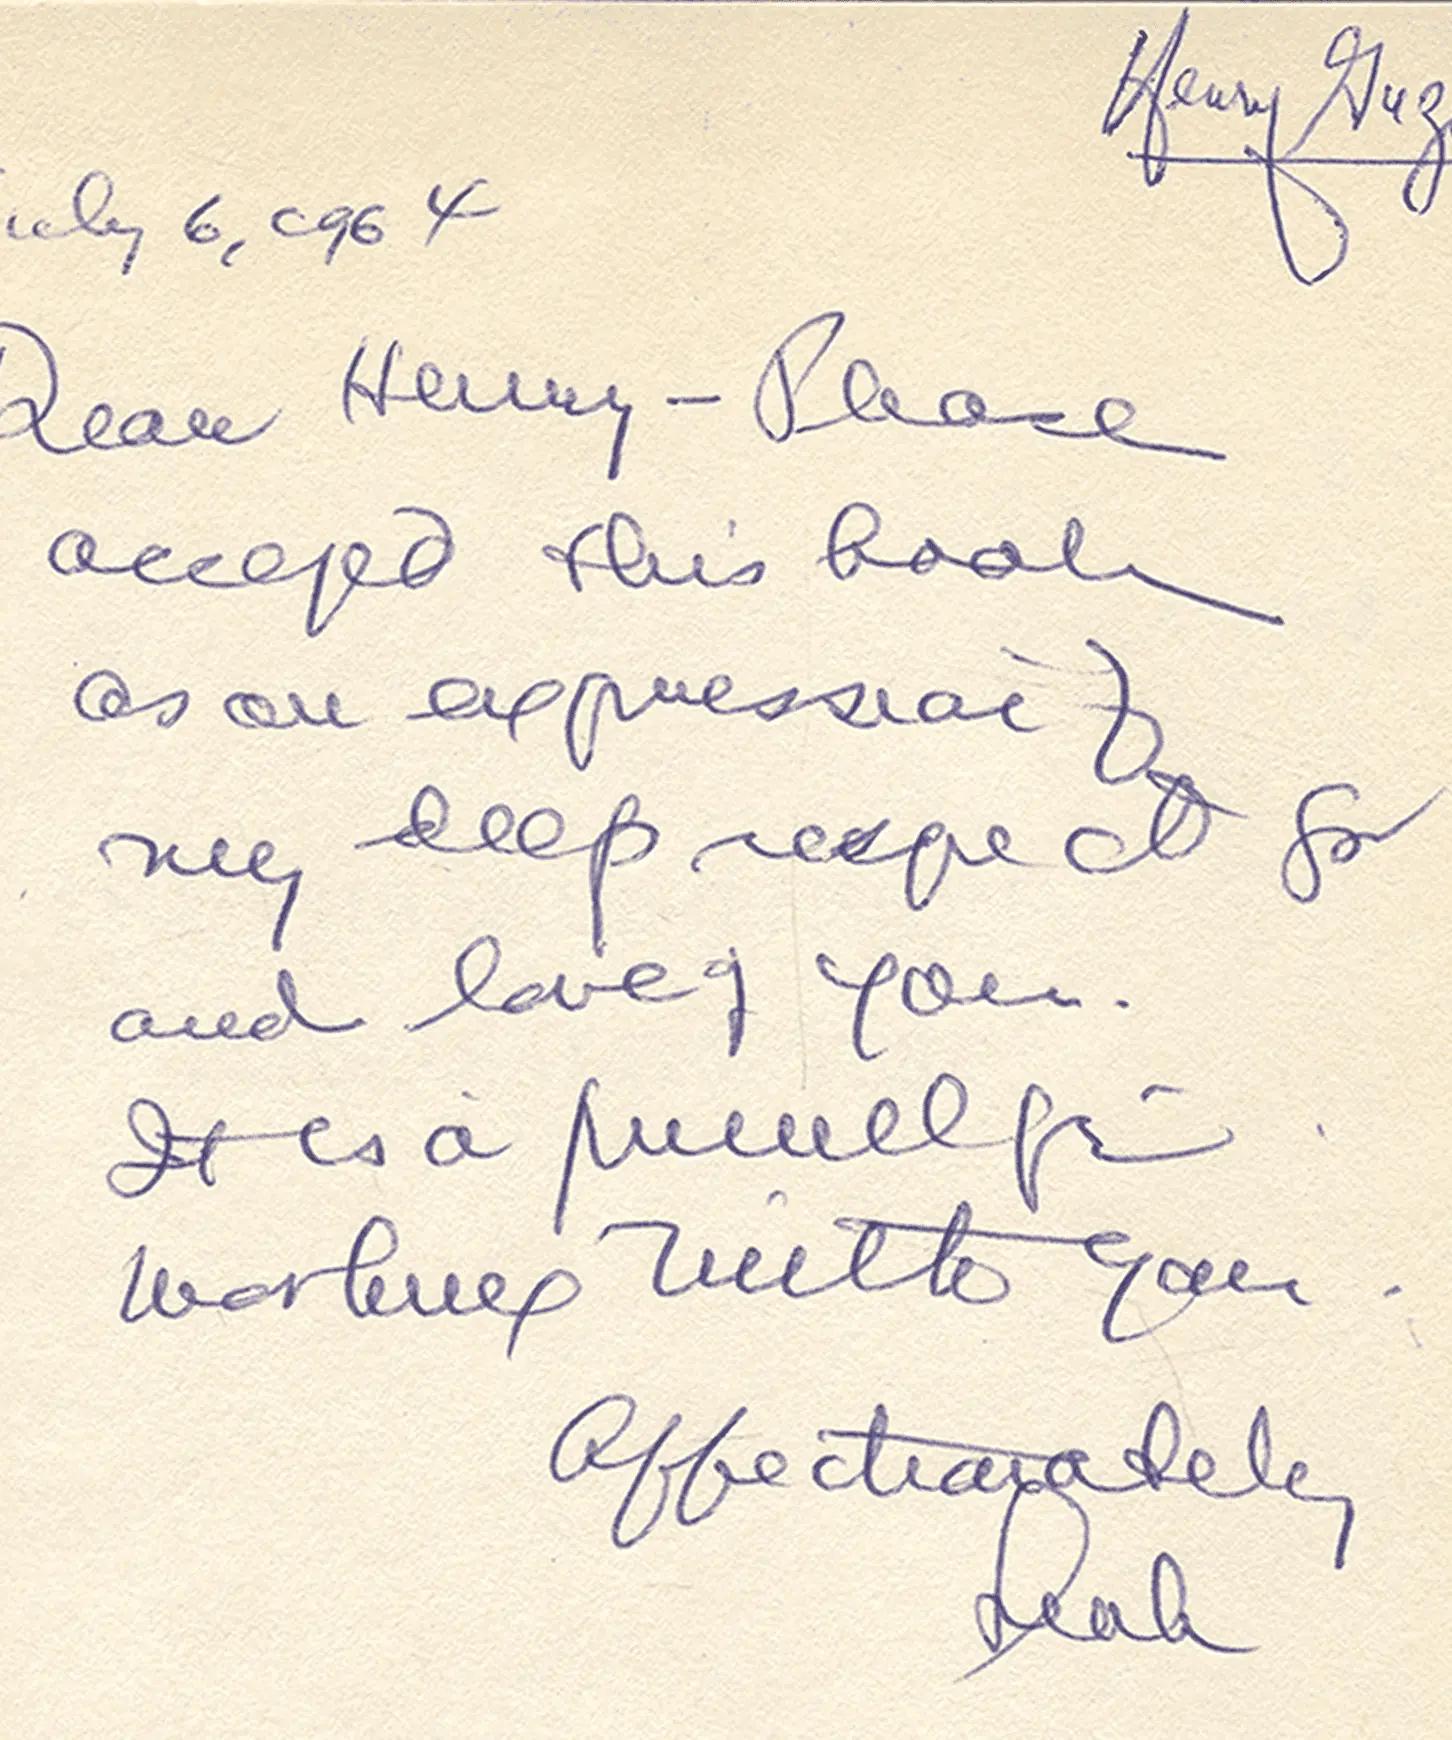 Henry Guz
July 6, 1964
Dear Henry – Please
accept this book
as an expression of
my deep respect for
and love of you.
It is a privilege
working with you.
Affectionately
Leah